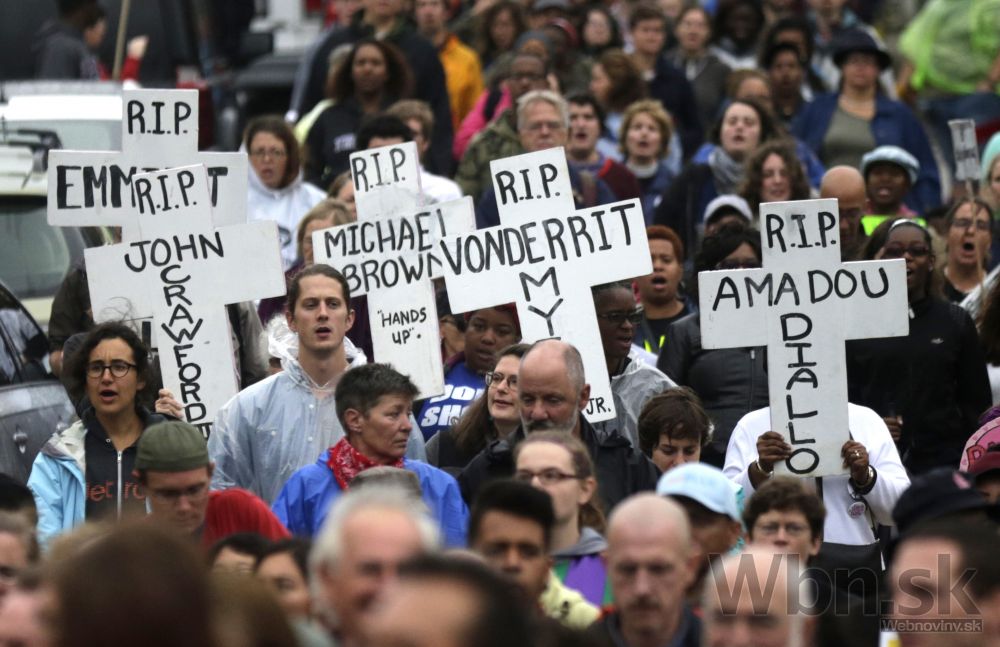 R.I.P.
EMMIT
R.I.P.
JOHN
CRAWFORD
R.I.P.
MICHAEL
BROWN
"HANDS
UP".
R.I.P.
VONDERRIT
MY
JR.
R.I.P.
AMADOU
DIALLO
Wbn.sk
Webnoviny.sk